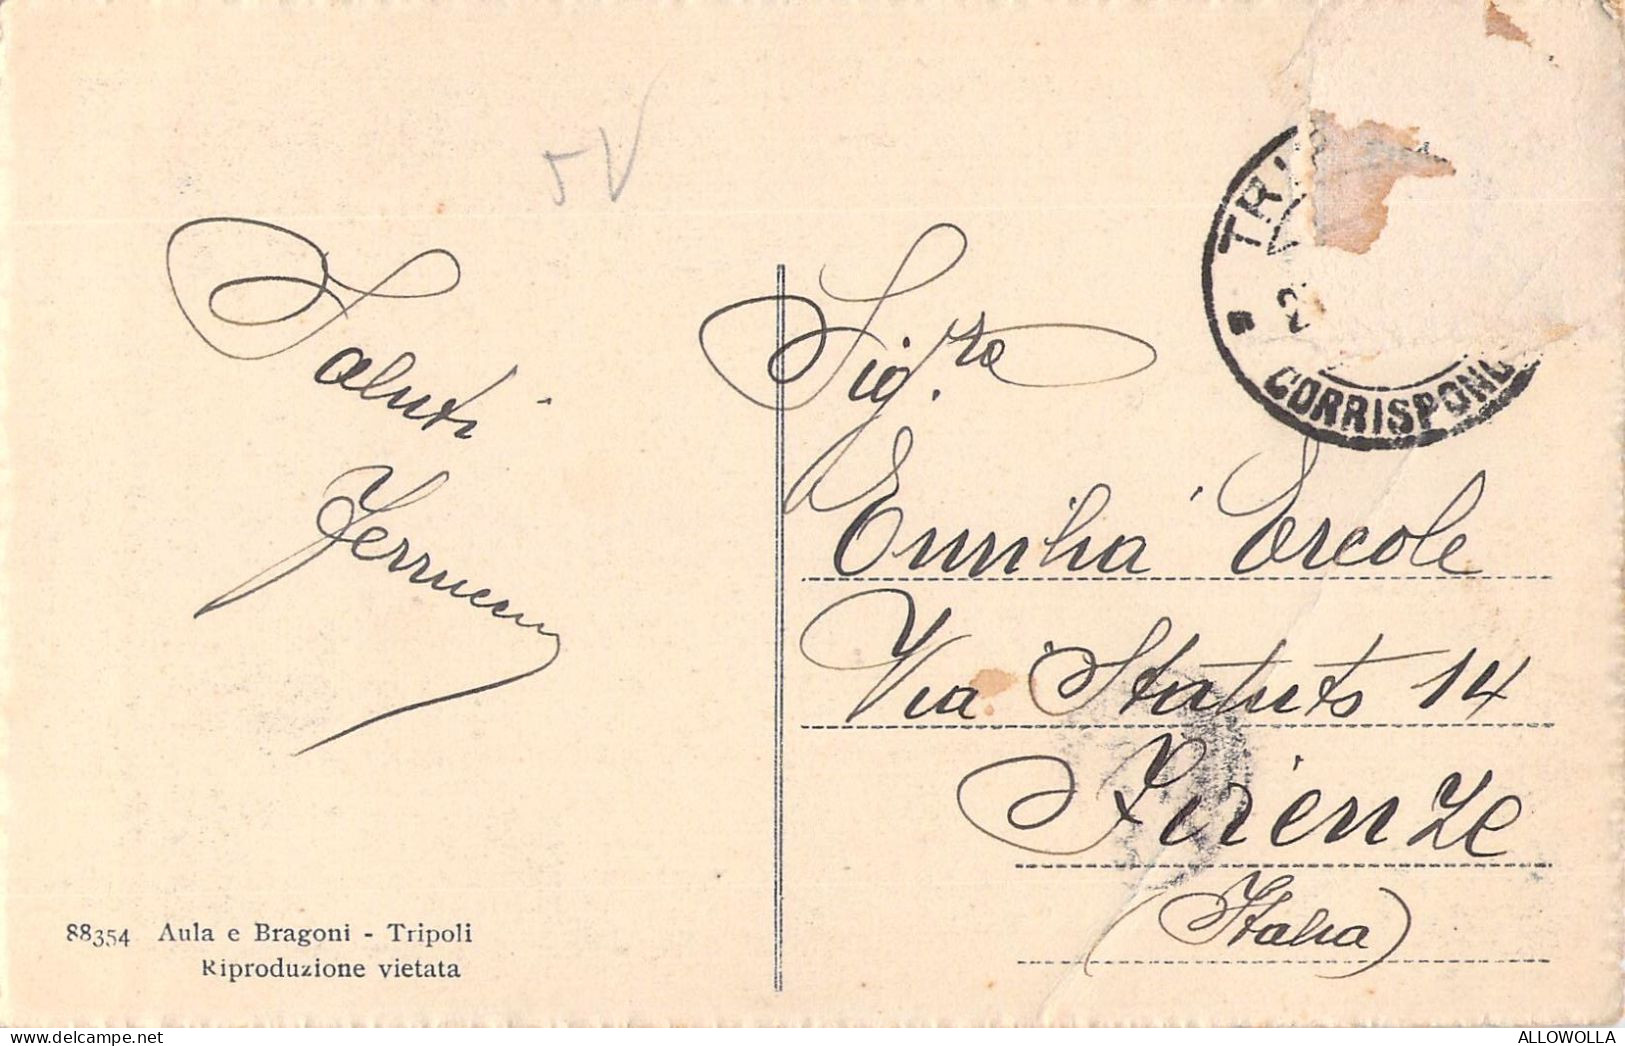 5V
Saluti
Ferruccio
Sig.ra
Emilia Ercole
Via Statuto 14
Firenze
(Italia)
CORRISPOND
88354 Aula e Bragoni - Tripoli
Riproduzione vietata
ALLOWOLLA